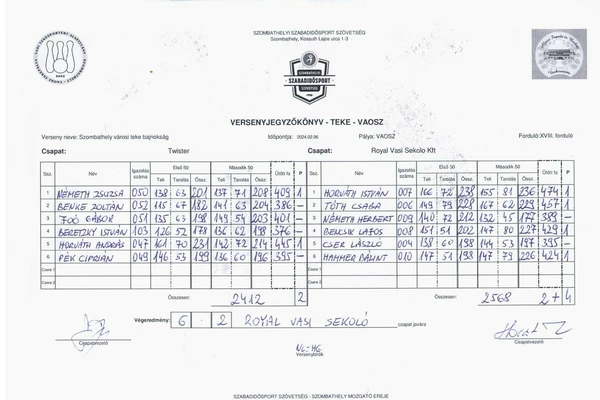 SZOMBATHELYI SZABADIDŐSPORT SZÖVETSÉG
Szombathely, Kossuth Lajos utca 1-3
SZOMBATHELYI
SZABADIDŐSPORT
SZÖVETSÉG
VERSENYJEGYZŐKÖNYV - TEKE - VAOSZ
Verseny neve: Szombathely városi teke bajnokság Időpontja: 2024.02.06 Pálya: VAOSZ Forduló: XVIII. forduló
Csapat: Twister Csapat: Royal Vasi Sekolo Kft
Ssz. Név Igazolás száma Első 50 Második 50 Ütött fa P Ssz. Név Igazolás száma Első 50 Második 50 Ütött fa P
Teli Tarolás Össz. Teli Tarolás Össz. Teli Tarolás Össz. Teli Tarolás Össz.
1 NÉMETH ZSUZSA 050 138 63 201 137 71 208 409 1 1 HORVÁTH ISTVÁN 007 166 72 238 155 81 236 474 1
2 BENKE ZOLTÁN 052 115 67 182 141 63 204 386 — 2 TÓTH CSABA 006 149 79 228 167 62 229 457 1
3 JOÓ GÁBOR 051 135 63 198 149 54 203 401 — 3 NÉMETH HERBERT 009 140 72 212 132 45 177 389 —
4 BERETZKY ISTVÁN 103 126 52 178 136 62 198 376 — 4 BENCSIK LAJOS 008 151 51 202 147 80 227 429 1
5 HORVÁTH ANDRÁS 047 161 70 231 142 72 214 445 1 5 CSER LÁSZLÓ 004 138 60 198 144 53 197 395 —
6 PÉK CIPRIÁN 049 146 53 199 136 60 196 395 — 6 HAMMER BÁLINT 010 147 51 198 147 79 226 424 1
Csere 1 Csere 1
Csere 2 Csere 2
Összesen: 2412 2 Összesen: 2568 2+4
Végeredmény: 6 - 2 ROYAL VASI SEKOLÓ csapat javára
Csapatvezető Csapatvezető
NL-HG
Versenybírók
SZABADIDŐSPORT SZÖVETSÉG - SZOMBATHELY MOZGATÓ EREJE